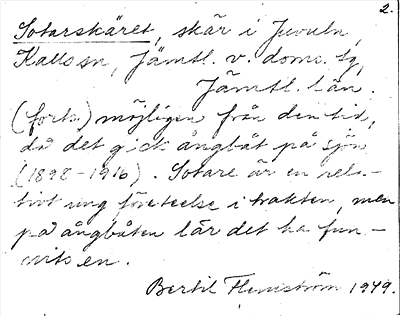 2.
Sotarskäret, skär i Juvuln,
Kalls sn, Jämtl. v. doms. tg,
Jämtl. län.
(forts.) möjligen från den tid,
då det gick ångbåt på sjön
(1898-1916). Sotare är en rela-
tivt ung företeelse i trakten, men
på ångbåten lär det ha fun-
nits en.
Bertil Flemström 1949.